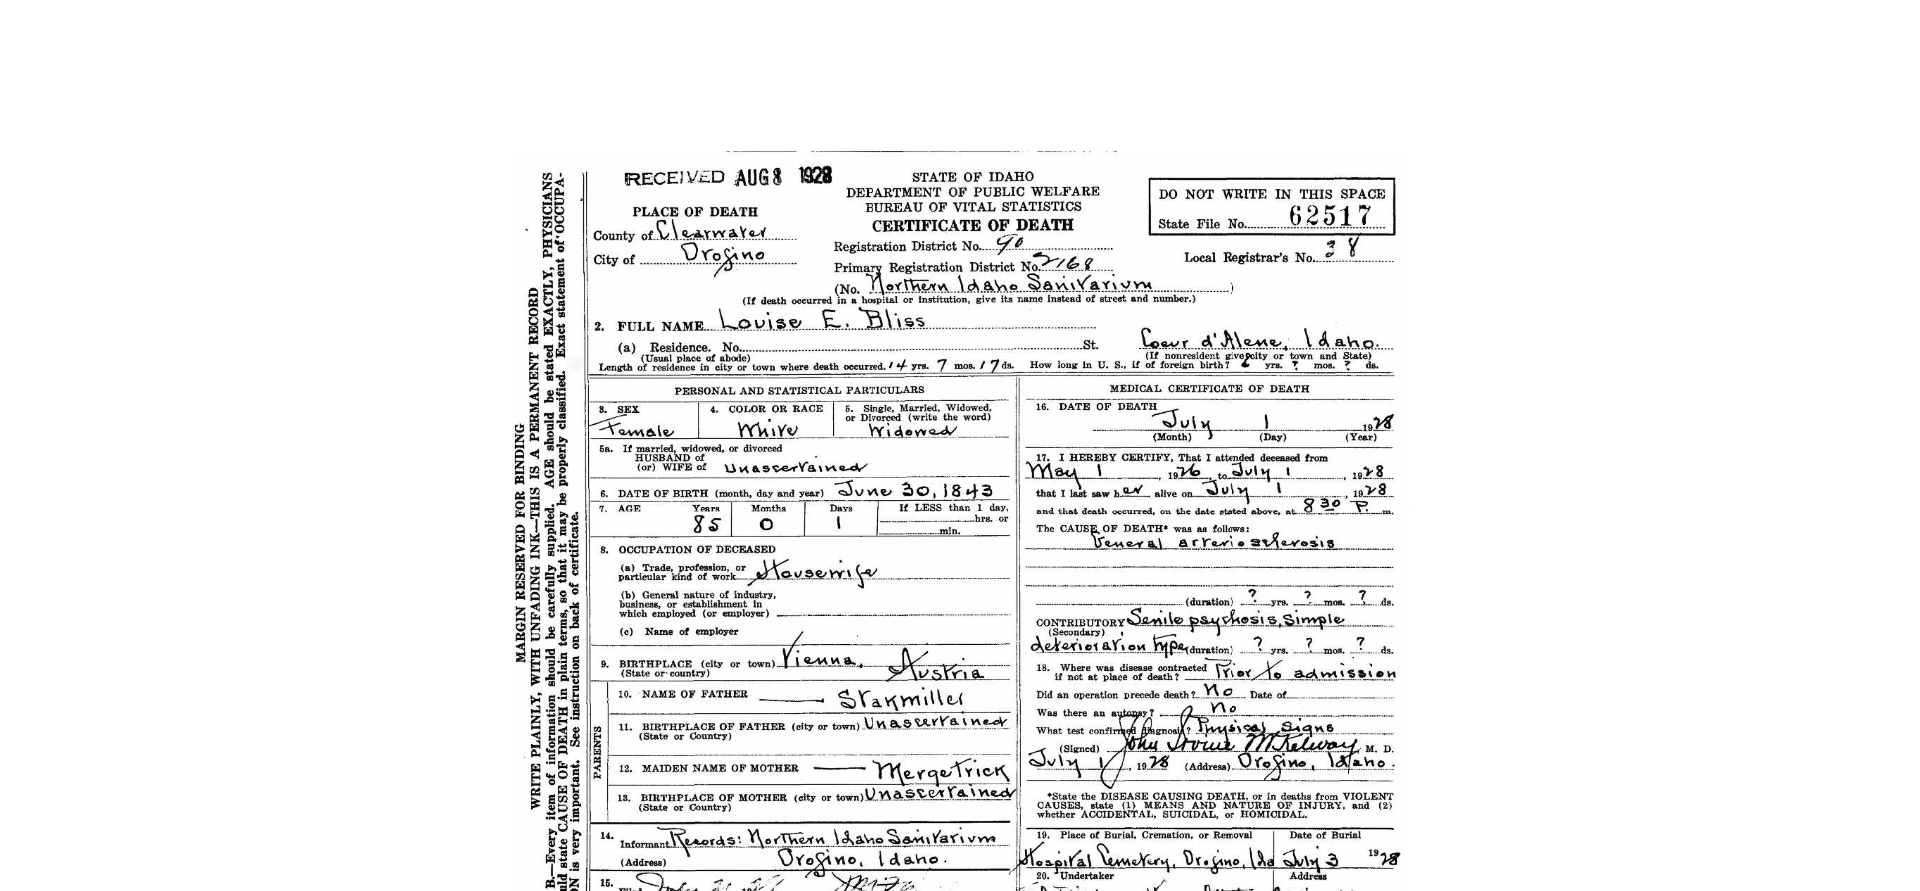 RECEIVED AUG 8 1928
STATE OF IDAHO
DEPARTMENT OF PUBLIC WELFARE
BUREAU OF VITAL STATISTICS
CERTIFICATE OF DEATH
DO NOT WRITE IN THIS SPACE
State File No. 62517
PLACE OF DEATH
County of Clearwater
City of Orofino
Registration District No. 90
Primary Registration District No. 2168
Local Registrar's No. 38
(No. Northern Idaho Sanitarium )
(If death occurred in a hospital or institution, give its name instead of street and number.)
2. FULL NAME Louise E. Bliss
(a) Residence. No. St. Coeur d'Alene, Idaho.
(Usual place of abode) (If nonresident give city or town and State)
Length of residence in city or town where death occurred. 14 yrs. 7 mos. 17 ds. How long in U. S., if of foreign birth? yrs. ? mos. ? ds.
PERSONAL AND STATISTICAL PARTICULARS
3. SEX
Female
4. COLOR OR RACE
White
5. Single, Married, Widowed,
or Divorced (write the word)
Widowed
5a. If married, widowed, or divorced
HUSBAND of
(or) WIFE of Unascertained
6. DATE OF BIRTH (month, day and year) June 30, 1843
7. AGE Years Months Days If LESS than 1 day,
85 0 1 hrs. or
min.
8. OCCUPATION OF DECEASED
(a) Trade, profession, or
particular kind of work Housewife
(b) General nature of industry,
business, or establishment in
which employed (or employer)
(c) Name of employer
9. BIRTHPLACE (city or town) Vienna,
(State or country) Austria
PARENTS
10. NAME OF FATHER Stakmiller
11. BIRTHPLACE OF FATHER (city or town) Unascertained
(State or Country)
12. MAIDEN NAME OF MOTHER Mergetrick
13. BIRTHPLACE OF MOTHER (city or town) Unascertained
(State or Country)
14. Informant Records: Northern Idaho Sanitarium
(Address) Orofino, Idaho.
15.
MEDICAL CERTIFICATE OF DEATH
16. DATE OF DEATH
July 1 1928
(Month) (Day) (Year)
17. I HEREBY CERTIFY, That I attended deceased from
May 1, 1926, to July 1, 1928
that I last saw her alive on July 1, 1928
and that death occurred, on the date stated above, at 8 30 P. m.
The CAUSE OF DEATH* was as follows:
General arteriosclerosis
(duration) ? yrs. ? mos. ? ds.
CONTRIBUTORY Senile psychosis, Simple
(Secondary)
deterioration type (duration) ? yrs. ? mos. ? ds.
18. Where was disease contracted
if not at place of death? Prior to admission
Did an operation precede death? No Date of
Was there an autopsy? No
What test confirmed diagnosis? Physical Signs
(Signed) John McKelway M. D.
July 1, 1928 (Address) Orofino, Idaho.
*State the DISEASE CAUSING DEATH, or in deaths from VIOLENT
CAUSES, state (1) MEANS AND NATURE OF INJURY, and (2)
whether ACCIDENTAL, SUICIDAL, or HOMICIDAL.
19. Place of Burial, Cremation, or Removal Date of Burial
Hospital Cemetery, Orofino, Ida July 3 1928
20. Undertaker Address
MARGIN RESERVED FOR BINDING
WRITE PLAINLY, WITH UNFADING INK—THIS IS A PERMANENT RECORD
B.—Every item of information should be carefully supplied. AGE should be stated EXACTLY, PHYSICIANS
state CAUSE OF DEATH in plain terms, so that it may be properly classified. Exact statement of OCCUPA-
is very important. See instruction on back of certificate.